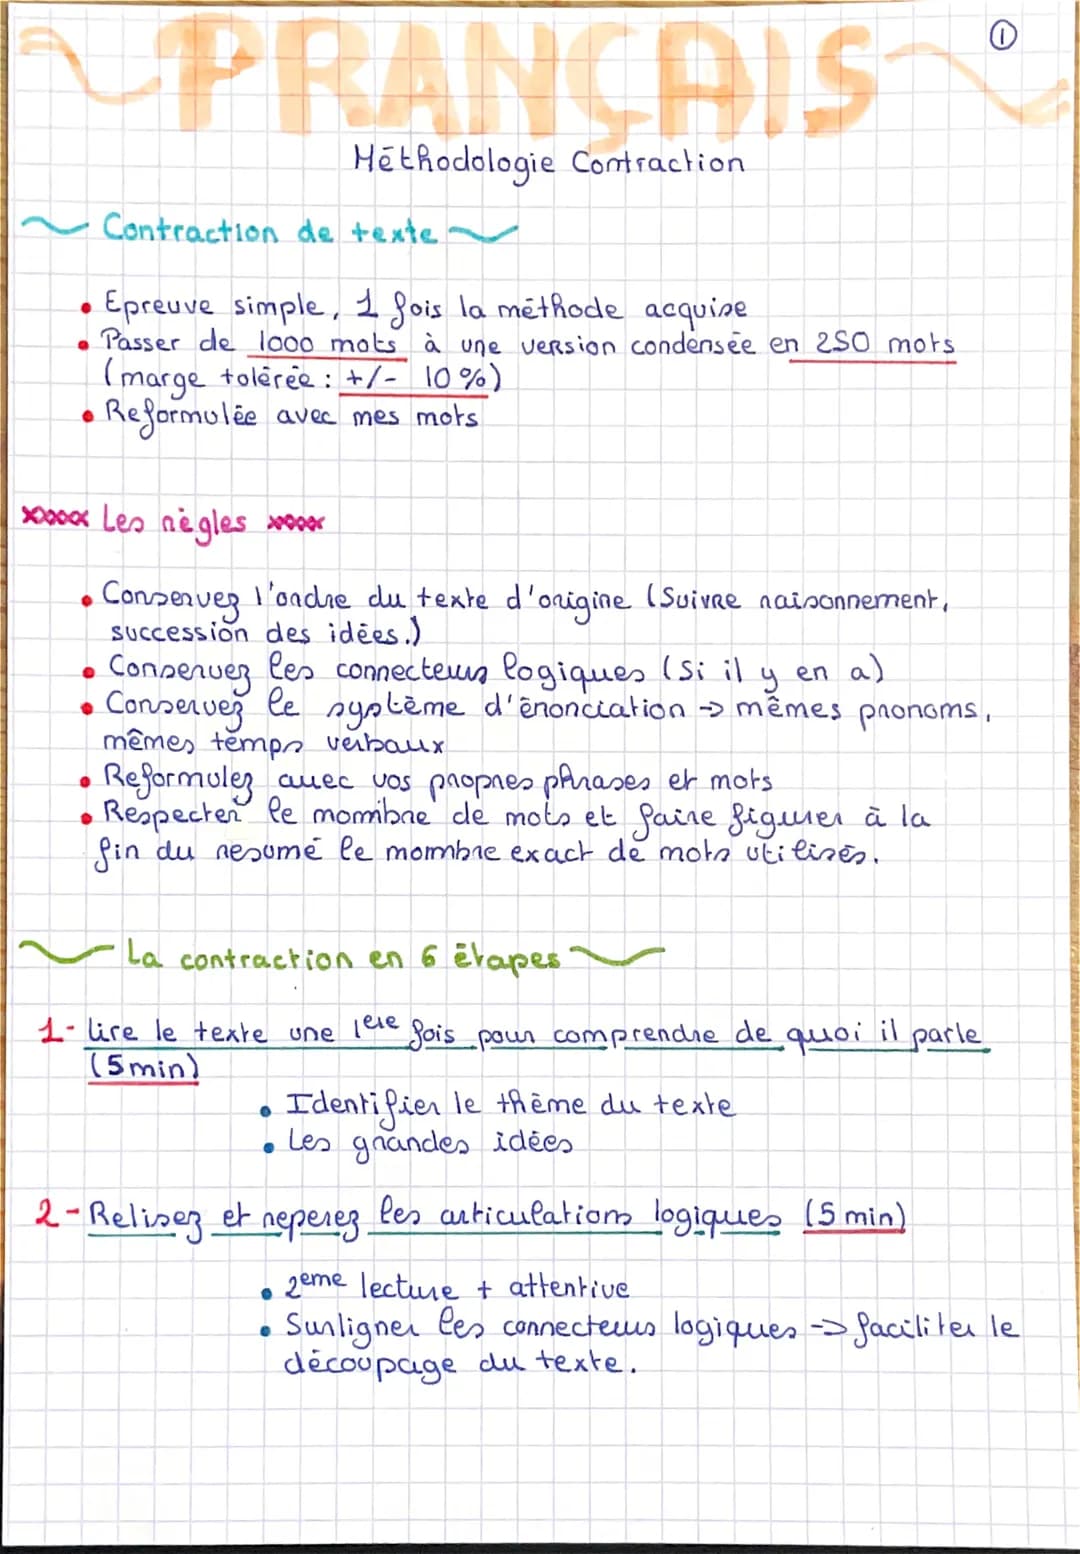 FRANÇAIS
①
Méthodologie Contraction
Contraction de texte
• Epreuve simple, 1 fois la méthode acquise
• Passer de 1000 mots à une version condensée en 250 mots
(marge tolérée : +/- 10 %)
• Reformulée avec mes mots
Les règles
• Conservez l'ordre du texte d'origine (Suivre raisonnement,
succession des idées.)
• Conservez les connecteurs logiques (Si il y en a)
• Conservez le système d'énonciation → mêmes pronoms,
mêmes temps verbaux
• Reformulez avec vos propres phrases et mots
• Respecter le nombre de mots et faire figurer à la
fin du resumé le nombre exact de mots utilisés.
La contraction en 6 étapes
1- lire le texte une 1ere fois pour comprendre de quoi il parle
(5min)
• Identifier le thème du texte
• Les grandes idées
2- Relisez et reperez les articulations logiques (5 min)
• 2eme lecture + attentive
• Surligner les connecteurs logiques → faciliter le
découpage du texte.